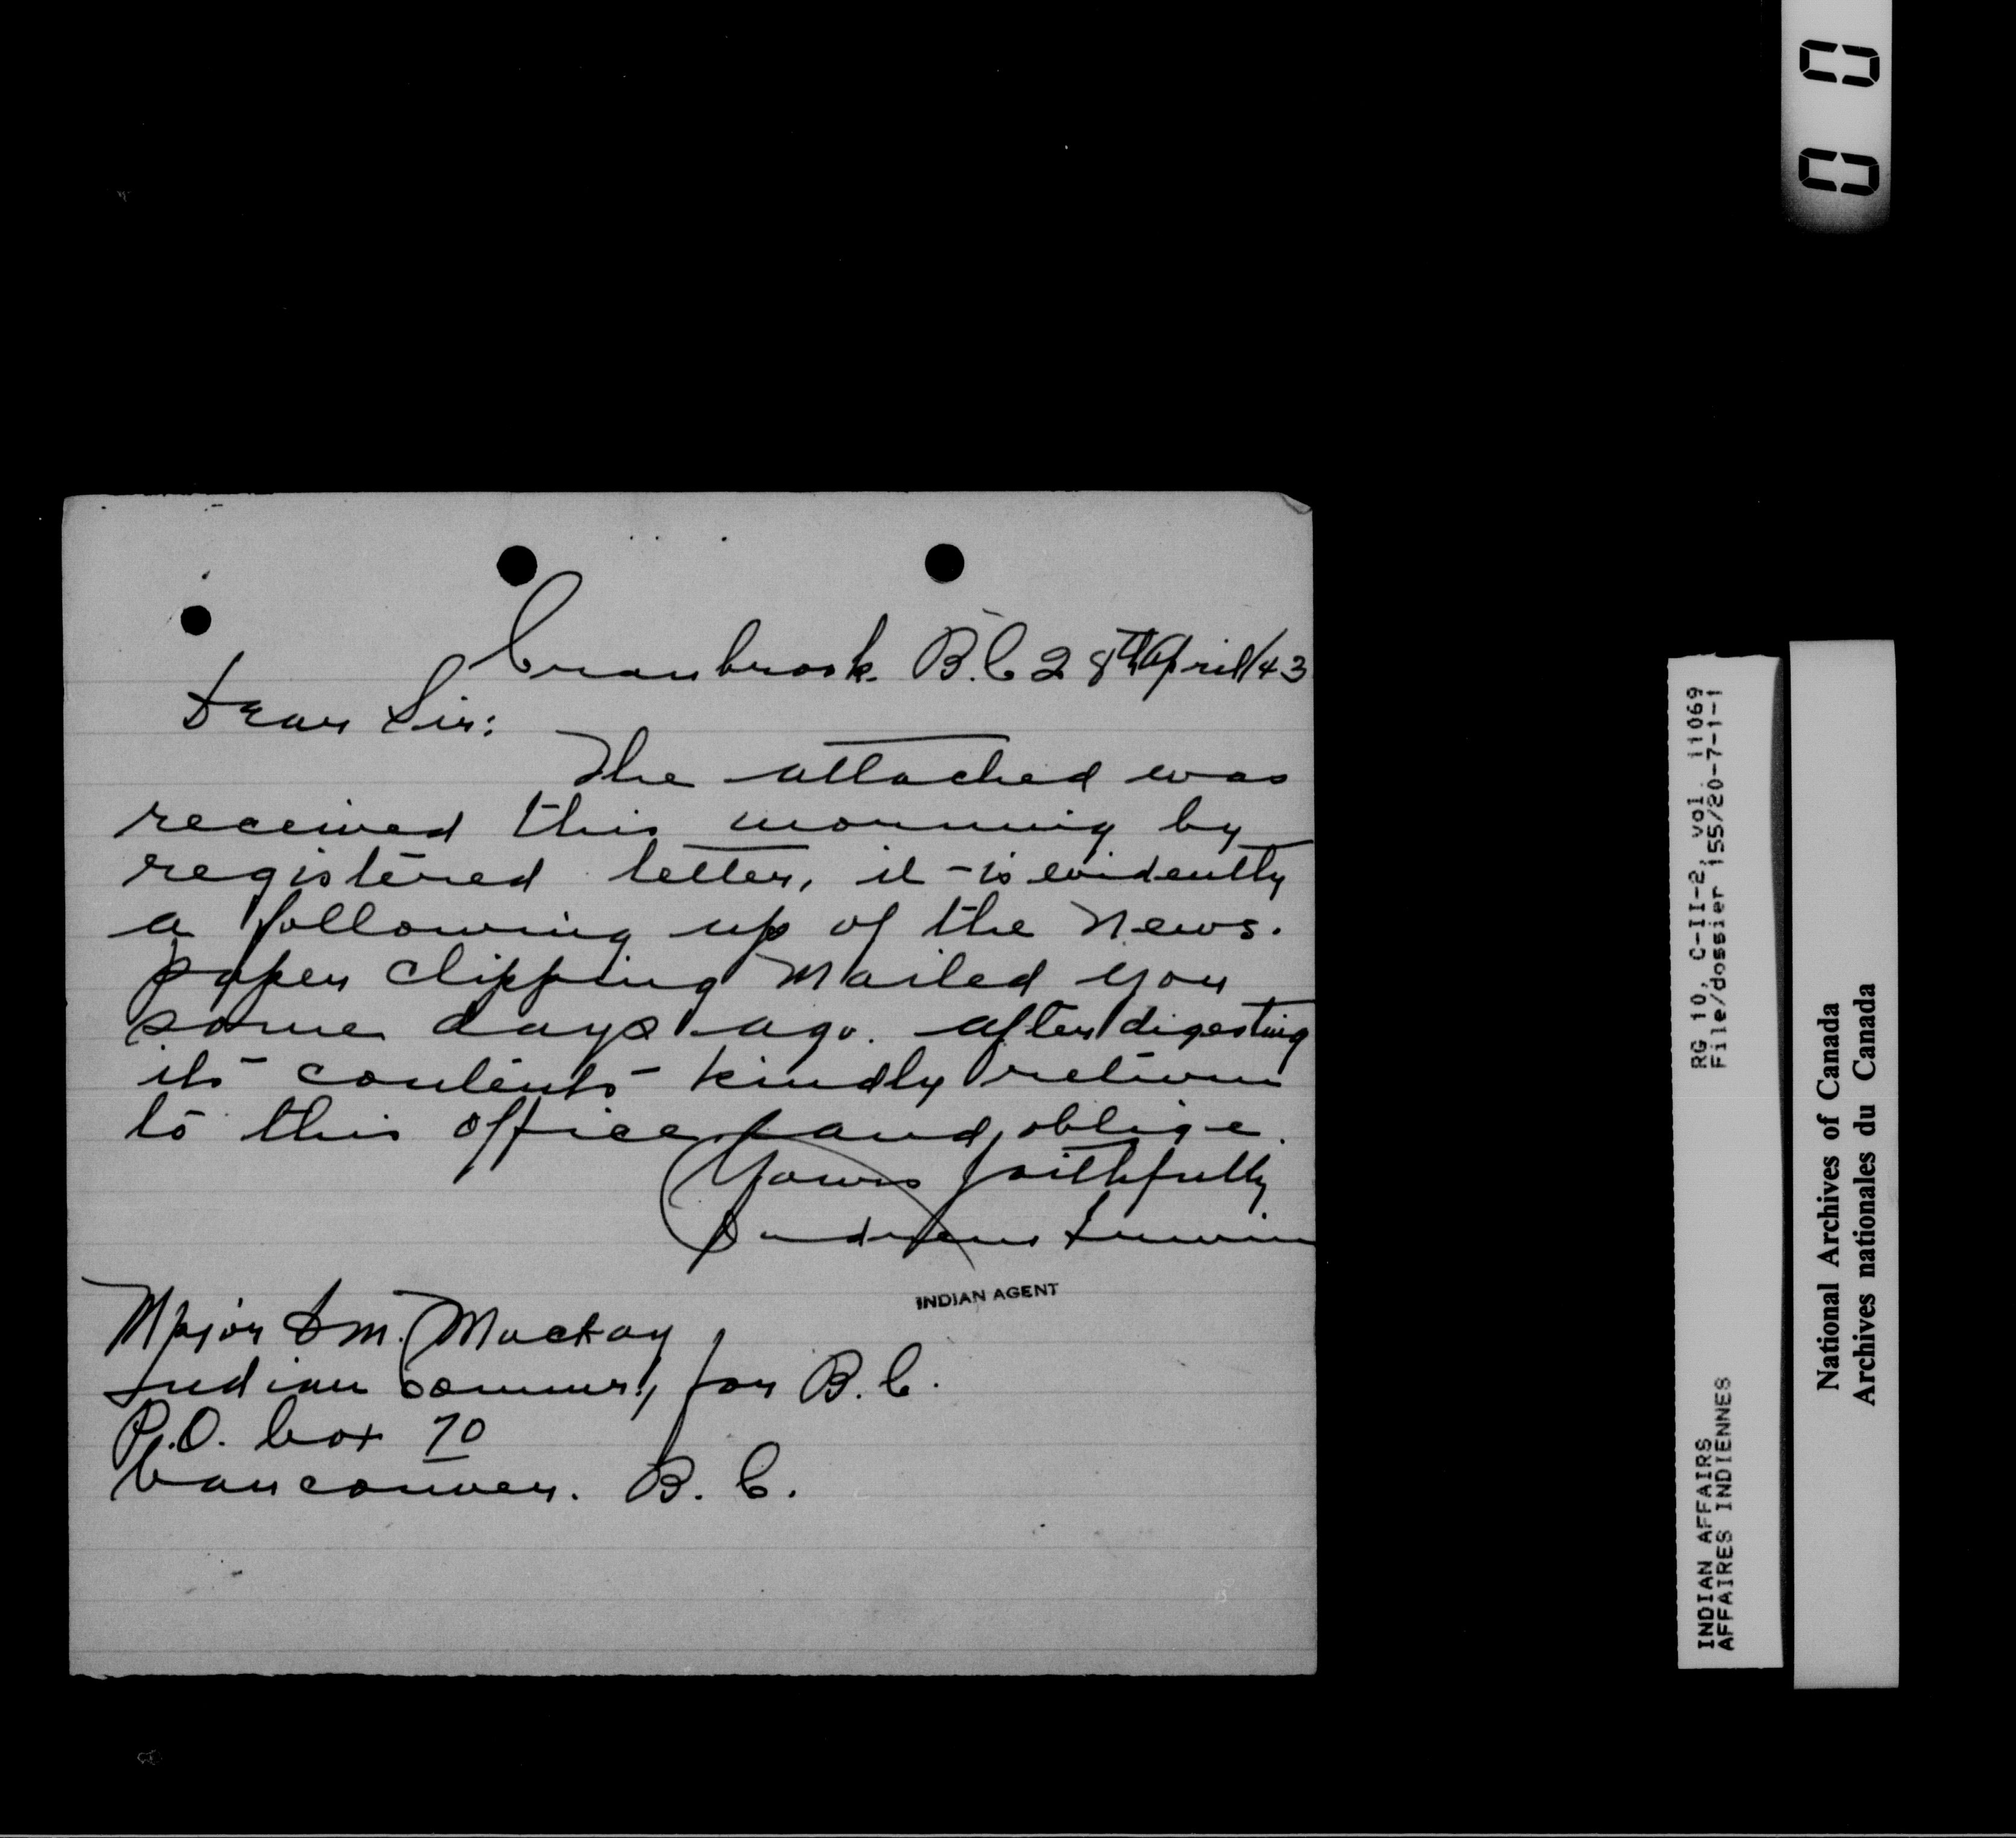 Cranbrook. B.C 28th April/43
Dear Sir:
The attached was
received this morning by
registered letter, it is evidently
a following up of the News.
paper clipping mailed you
some days ago. after digesting
its contents kindly return
to this office and oblige.
Yours faithfully
INDIAN AGENT
Major D.M. MacKay
Indian Commr, for B.C.
P.O. box 70
Vancouver. B.C.
RG 10, C-II-2, vol. 11069
File/dossier 155/20-7-1-1
INDIAN AFFAIRS
AFFAIRES INDIENNES
National Archives of Canada
Archives nationales du Canada